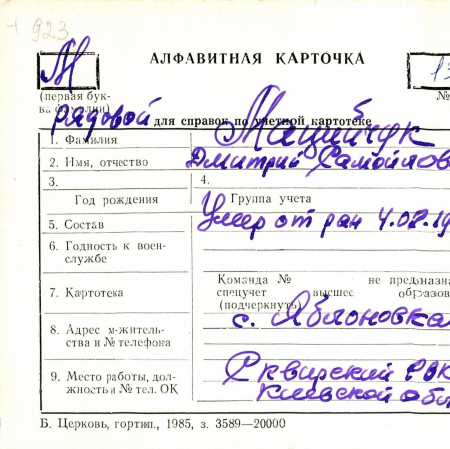 923
АЛФАВИТНАЯ КАРТОЧКА
М
13
(первая бук-
ва фамилии)
№
рядовой для справок по учетной картотеке
1. Фамилия Мацийчук
2. Имя, отчество Дмитрий Самойлов
3. 4.
Год рождения Группа учета
5. Состав Умер от ран 4.02.19
6. Годность к воен-
службе
7. Картотека
Команда № не предназна
спецучет высшее образов
(подчеркнуть)
8. Адрес м-житель-
ства и № телефона
с. Яблоновка
9. Место работы, дол-
жность и № тел. ОК
Сквирский РВК
Киевской обл
Б. Церковь, гортип., 1985, з. 3589—20000